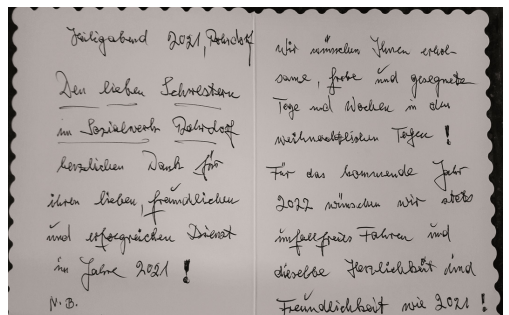 Heiligabend 2021, Rohrdorf
Den lieben Schwestern
im Sozialwerk Rohrdorf
herzlichen Dank für
ihren lieben, freundlichen
und erfolgreichen Dienst
im Jahre 2021!
N.B.
Wir wünschen Ihnen erhol-
same, frohe und gesegnete
Tage und Wochen in den
weihnachtlichen Tagen!
Für das kommende Jahr
2022 wünschen wir stets
unfallfreies Fahren und
dieselbe Herzlichkeit und
Freundlichkeit wie 2021!